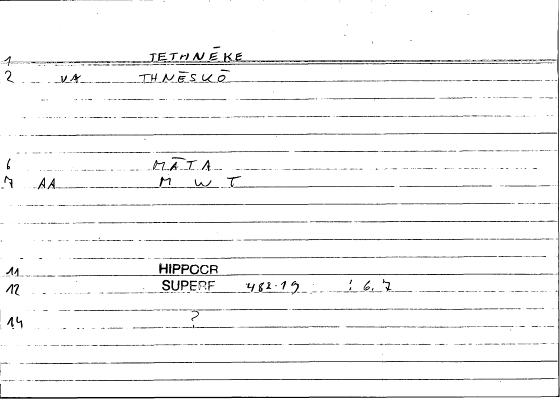 1 TETHNĒKE
2 VA THNĒSKŌ
6 MĀTA
7 AA M W T
11 HIPPOCR
12 SUPERF 482.19 : 6.7
14 ?